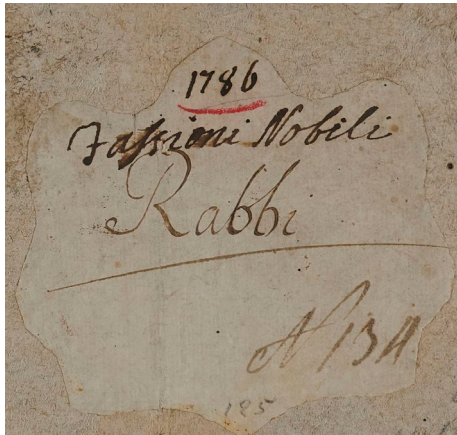 1786
Fassioni Nobili
Rabbi
N 134
185